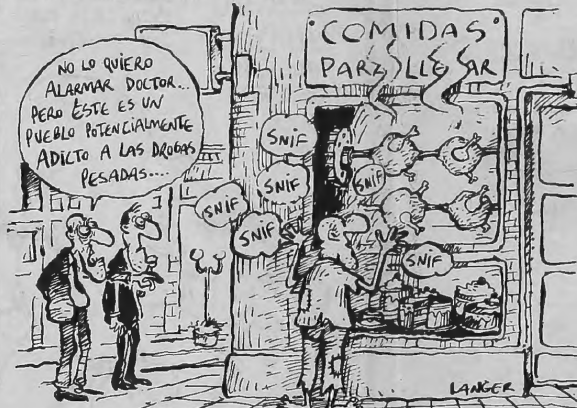 NO LO QUIERO
ALARMAR DOCTOR...
PERO ÉSTE ES UN
PUEBLO POTENCIALMENTE
ADICTO A LAS DROGAS
PESADAS....
COMIDAS
PARA LLEVAR
SNIF
SNIF
SNIF
SNIF
SNIF
SNIF
LANGER